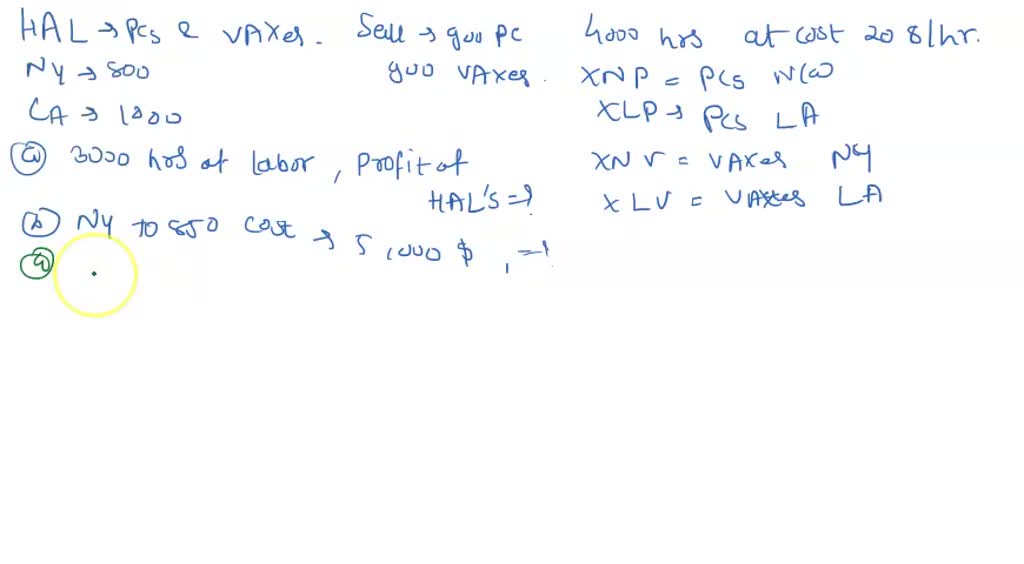 HAL → PCs & VAXes. Sell → 900 PC 4000 hrs at cost 20 $/hr.
NY → 800 900 VAXes. XNP = PCs
LA → 1000 XLP → PCs LA
a 3000 hrs of labor, Profit of HAL's = ? XNV = VAXes NY
XLV = VAXes LA
b NY to 850 cost → 5,000 $, = ?
a